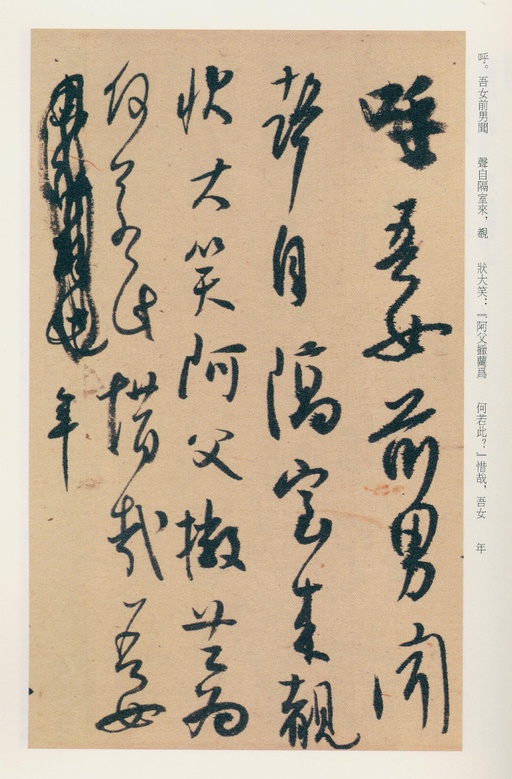 呼。吾女前男聞　聲自隔室來，觀　狀大笑：『阿父撇蘭爲　何若此？』惜哉，吾女　年
呼吾女前男聞
聲自隔室來觀
狀大笑阿父撇蘭为
何若此惜哉吾女
年